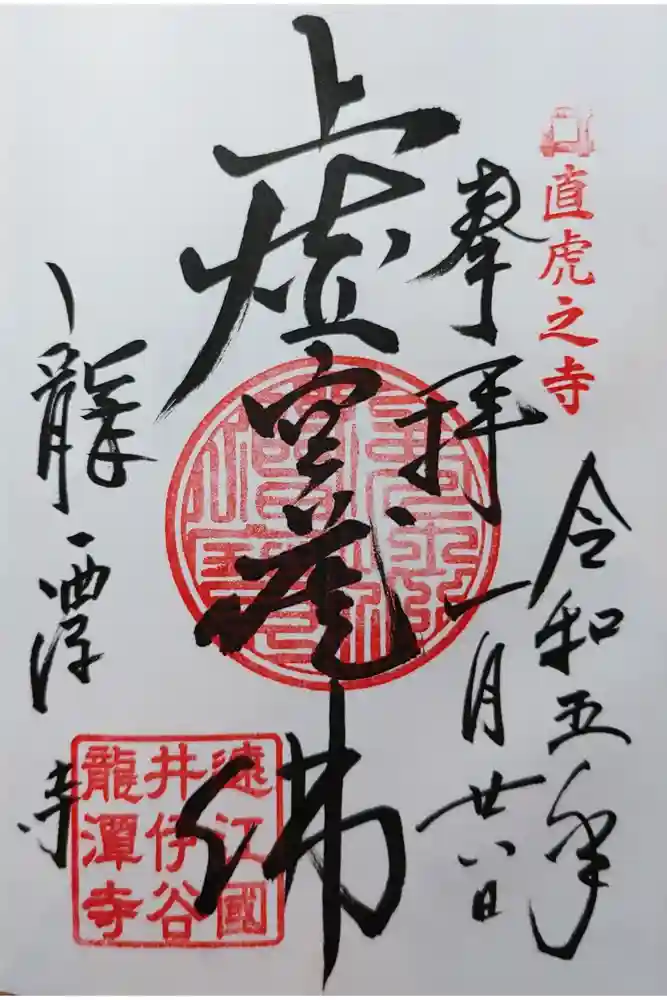 直虎之寺
令和五年
一月廿八日
奉拝
虚空蔵佛
龍潭寺
遠江國
井伊谷
龍潭寺